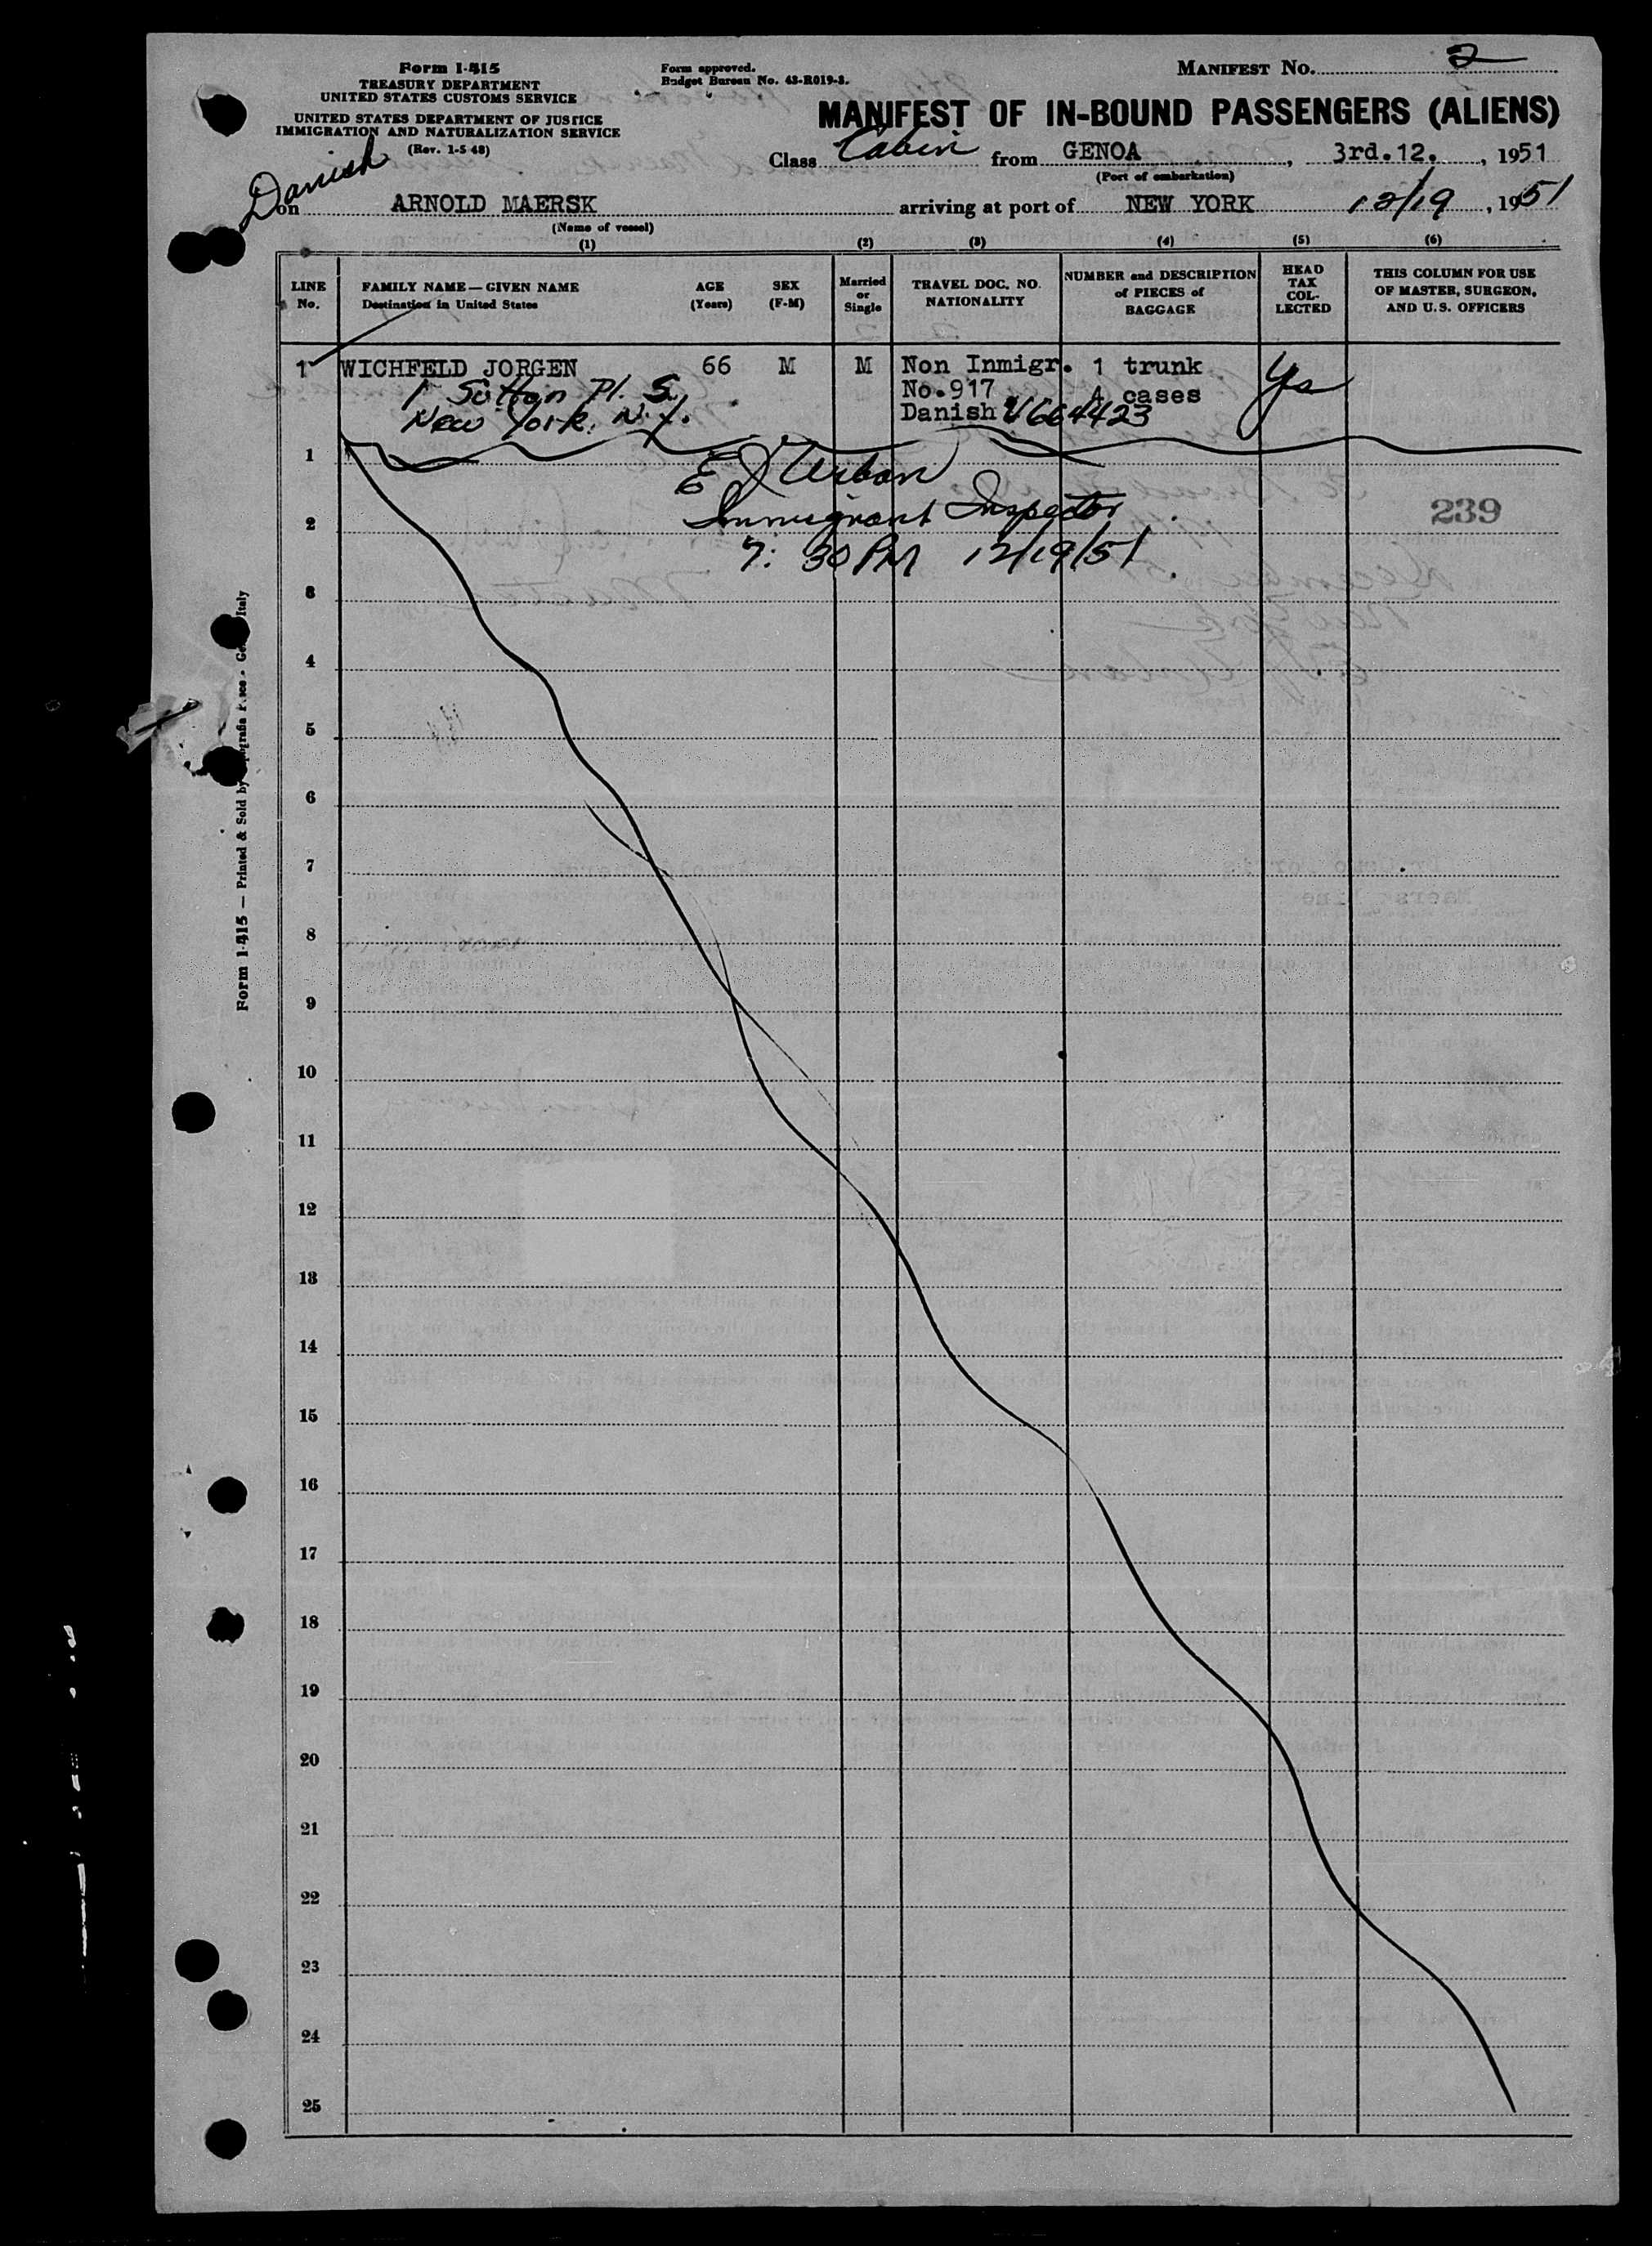 Form I-415
TREASURY DEPARTMENT
UNITED STATES CUSTOMS SERVICE
UNITED STATES DEPARTMENT OF JUSTICE
IMMIGRATION AND NATURALIZATION SERVICE
(Rev. 1-5 48)
Form approved.
Budget Bureau No. 43-R019-3.
MANIFEST No. 2
MANIFEST OF IN-BOUND PASSENGERS (ALIENS)
Class Cabin from GENOA, 3rd.12., 1951
(Port of embarkation)
Danish
on ARNOLD MAERSK arriving at port of NEW YORK 12/19, 1951
(Name of vessel)
(1) (2) (3) (4) (5) (6)
LINE No.
FAMILY NAME — GIVEN NAME
Destination in United States
AGE (Years)
SEX (F-M)
Married or Single
TRAVEL DOC. NO. NATIONALITY
NUMBER and DESCRIPTION of PIECES of BAGGAGE
HEAD TAX COLLECTED
THIS COLUMN FOR USE OF MASTER, SURGEON, AND U.S. OFFICERS
1 WICHFELD JORGEN 66 M M Non Inmigr. 1 trunk Yes
1 Sutton Pl. S. No.917 4 cases
New York. N.Y. Danish V664423
1
E J Urban
2 Immigrant Inspector 239
7:30 PM 12/19/51
3
4
5
6
7
8
9
10
11
12
13
14
15
16
17
18
19
20
21
22
23
24
25
Form I-415 — Printed & Sold by Italy